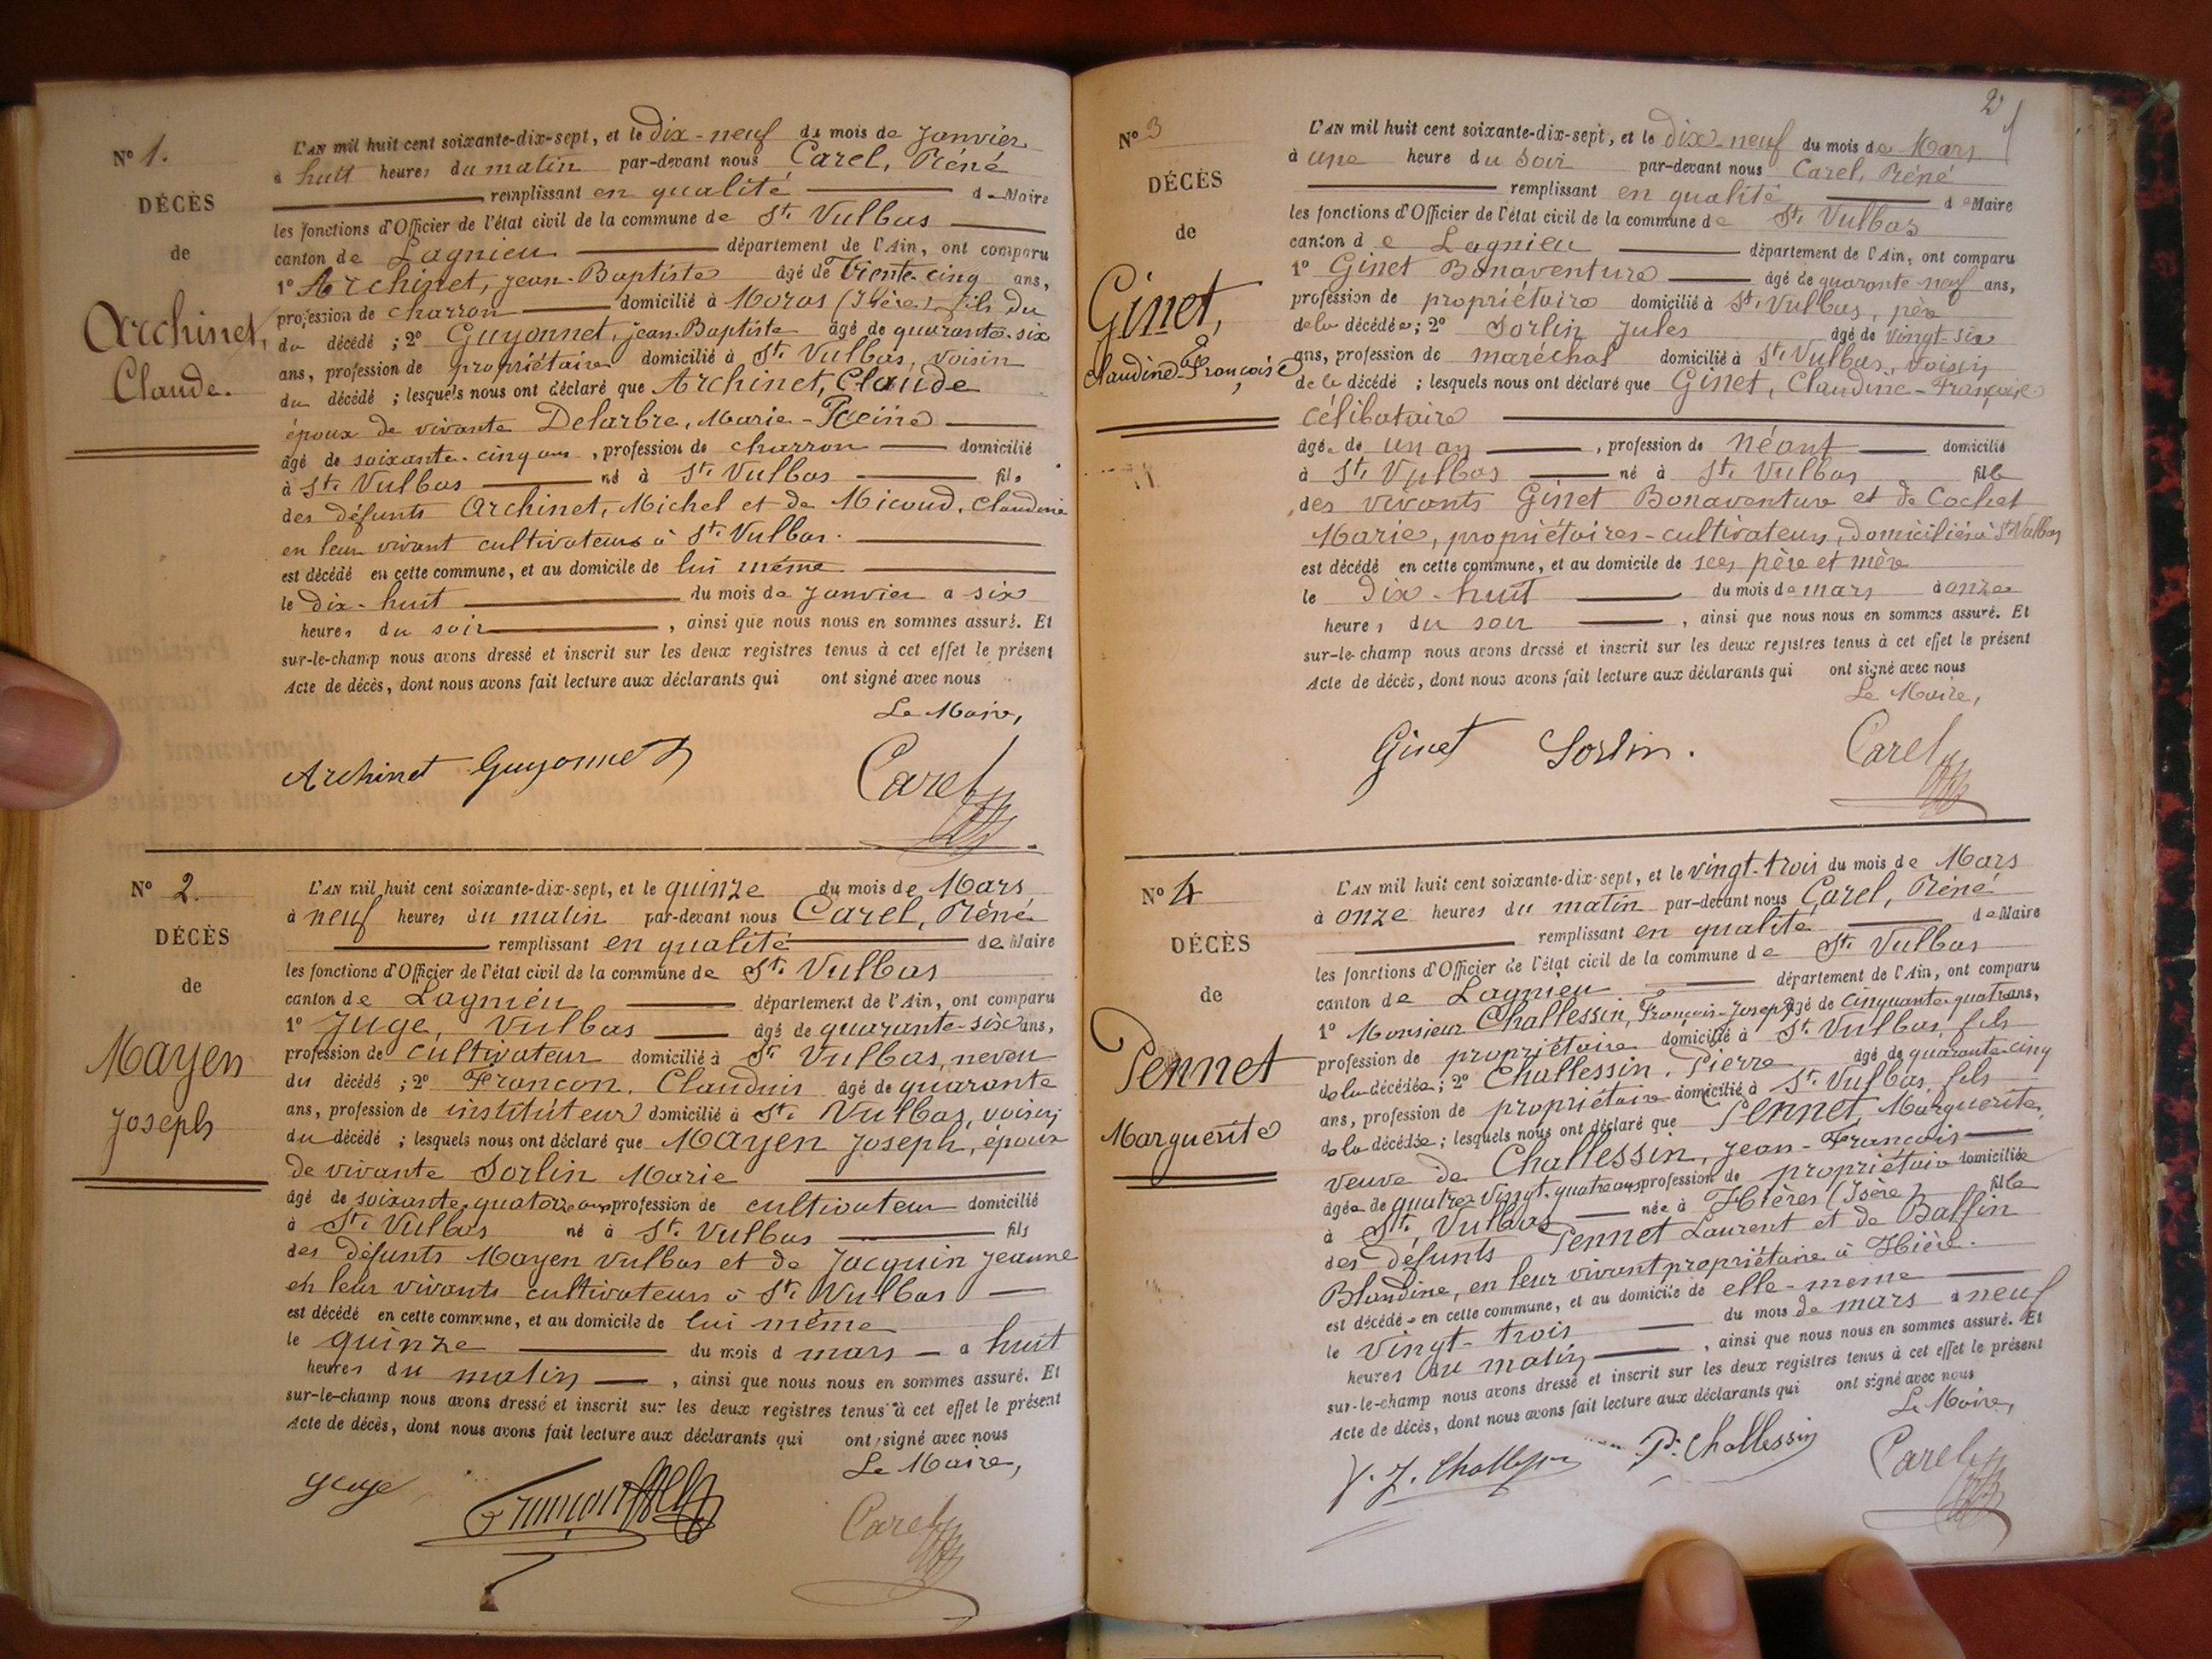 N° 1.
DÉCÈS
de
Archinet,
Claude.
L'AN mil huit cent soixante-dix-sept, et le dix-neuf du mois de Janvier
à huit heures du matin par-devant nous Carel, Réné
remplissant en qualité de Maire
les fonctions d'Officier de l'état civil de la commune de St. Vulbas
canton de Lagnieu département de l'Ain, ont comparu
1° Archinet, Jean-Baptiste âgé de Trente-cinq ans,
profession de charron domicilié à Moras (Isère), fils du
du décédé ; 2° Guyonnet, Jean-Baptiste âgé de quarante-six
ans, profession de propriétaire domicilié à St. Vulbas, voisin
du décédé ; lesquels nous ont déclaré que Archinet, Claude
époux de vivante Delarbre, Marie-Reine
âgé de soixante-cinq ans, profession de charron domicilié
à St. Vulbas né à St. Vulbas fils
des défunts Archinet, Michel et de Micoud, Claudine
en leur vivant cultivateurs à St. Vulbas.
est décédé en cette commune, et au domicile de lui même.
le dix-huit du mois de Janvier a six
heures du soir, ainsi que nous nous en sommes assuré. Et
sur-le-champ nous avons dressé et inscrit sur les deux registres tenus à cet effet le présent
Acte de décès, dont nous avons fait lecture aux déclarants qui ont signé avec nous
Le Maire,
Archinet Guyonnet Carel
N° 2.
DÉCÈS
de
Mayen
Joseph
L'AN mil huit cent soixante-dix-sept, et le quinze du mois de Mars
à neuf heures du matin par-devant nous Carel, Réné
remplissant en qualité de Maire
les fonctions d'Officier de l'état civil de la commune de St. Vulbas
canton de Lagnieu département de l'Ain, ont comparu
1° Juge, Vulbas âgé de quarante-six ans,
profession de cultivateur domicilié à St. Vulbas, neveu
du décédé ; 2° Françon, Claudius âgé de quarante
ans, profession de instituteur domicilié à St. Vulbas, voisin
du décédé ; lesquels nous ont déclaré que Mayen Joseph, époux
de vivante Sorlin Marie
âgé de soixante-quatorze ans profession de cultivateur domicilié
à St. Vulbas né à St. Vulbas fils
des défunts Mayen Vulbas et de Jacquin Jeanne
en leur vivants cultivateurs à St. Vulbas
est décédé en cette commune, et au domicile de lui même
le quinze du mois d mars a huit
heures du matin, ainsi que nous nous en sommes assuré. Et
sur-le-champ nous avons dressé et inscrit sur les deux registres tenus à cet effet le présent
Acte de décès, dont nous avons fait lecture aux déclarants qui ont signé avec nous
Le Maire,
Juge Françon Carel
2
N° 3
DÉCÈS
de
Ginet,
Claudine-Françoise
L'AN mil huit cent soixante-dix-sept, et le dix-neuf du mois de Mars
à une heure du soir par-devant nous Carel, Réné
remplissant en qualité de Maire
les fonctions d'Officier de l'état civil de la commune de St. Vulbas
canton de Lagnieu département de l'Ain, ont comparu
1° Ginet Bonaventure âgé de quarante-neuf ans,
profession de propriétaire domicilié à St. Vulbas, père
de la décédée ; 2° Sorlin Jules âgé de vingt-six
ans, profession de maréchal domicilié à St. Vulbas, voisin
de la décédé ; lesquels nous ont déclaré que Ginet, Claudine-Françoise
célibataire
âgée de un an, profession de néant domicilié
à St. Vulbas né à St. Vulbas fille
des vivants Ginet Bonaventure et de Cochet
Marie, propriétaires-cultivateurs, domiciliés à St. Vulbas
est décédé en cette commune, et au domicile de ses père et mère
le dix-huit du mois de mars à onze
heures du soir, ainsi que nous nous en sommes assuré. Et
sur-le-champ nous avons dressé et inscrit sur les deux registres tenus à cet effet le présent
Acte de décès, dont nous avons fait lecture aux déclarants qui ont signé avec nous
Le Maire,
Ginet Sorlin. Carel
N° 4
DÉCÈS
de
Pennet
Marguerite
L'AN mil huit cent soixante-dix-sept, et le vingt-trois du mois de Mars
à onze heures du matin par-devant nous Carel, Réné
remplissant en qualité de Maire
les fonctions d'Officier de l'état civil de la commune de St. Vulbas
canton de Lagnieu département de l'Ain, ont comparu
1° Monsieur Challessin, François-Joseph âgé de cinquante-quatre ans,
profession de propriétaire domicilié à St. Vulbas, fils
de la décédée ; 2° Challessin, Pierre âgé de quarante-cinq
ans, profession de propriétaire domicilié à St. Vulbas, fils
de la décédée ; lesquels nous ont déclaré que Pennet, Marguerite,
veuve de Challessin, Jean-François
âgée de quatre-vingt-quatre ans profession de propriétaire domiciliée
à St. Vulbas née à Hières (Isère) fille
des défunts Pennet Laurent et de Ballin
Blandine, en leur vivant propriétaire à Hière.
est décédée en cette commune, et au domicile de elle-meme
le vingt-trois du mois de mars à neuf
heures du matin, ainsi que nous nous en sommes assuré. Et
sur-le-champ nous avons dressé et inscrit sur les deux registres tenus à cet effet le présent
Acte de décès, dont nous avons fait lecture aux déclarants qui ont signé avec nous
Le Maire,
F. J. Challessin P. Challessin Carel